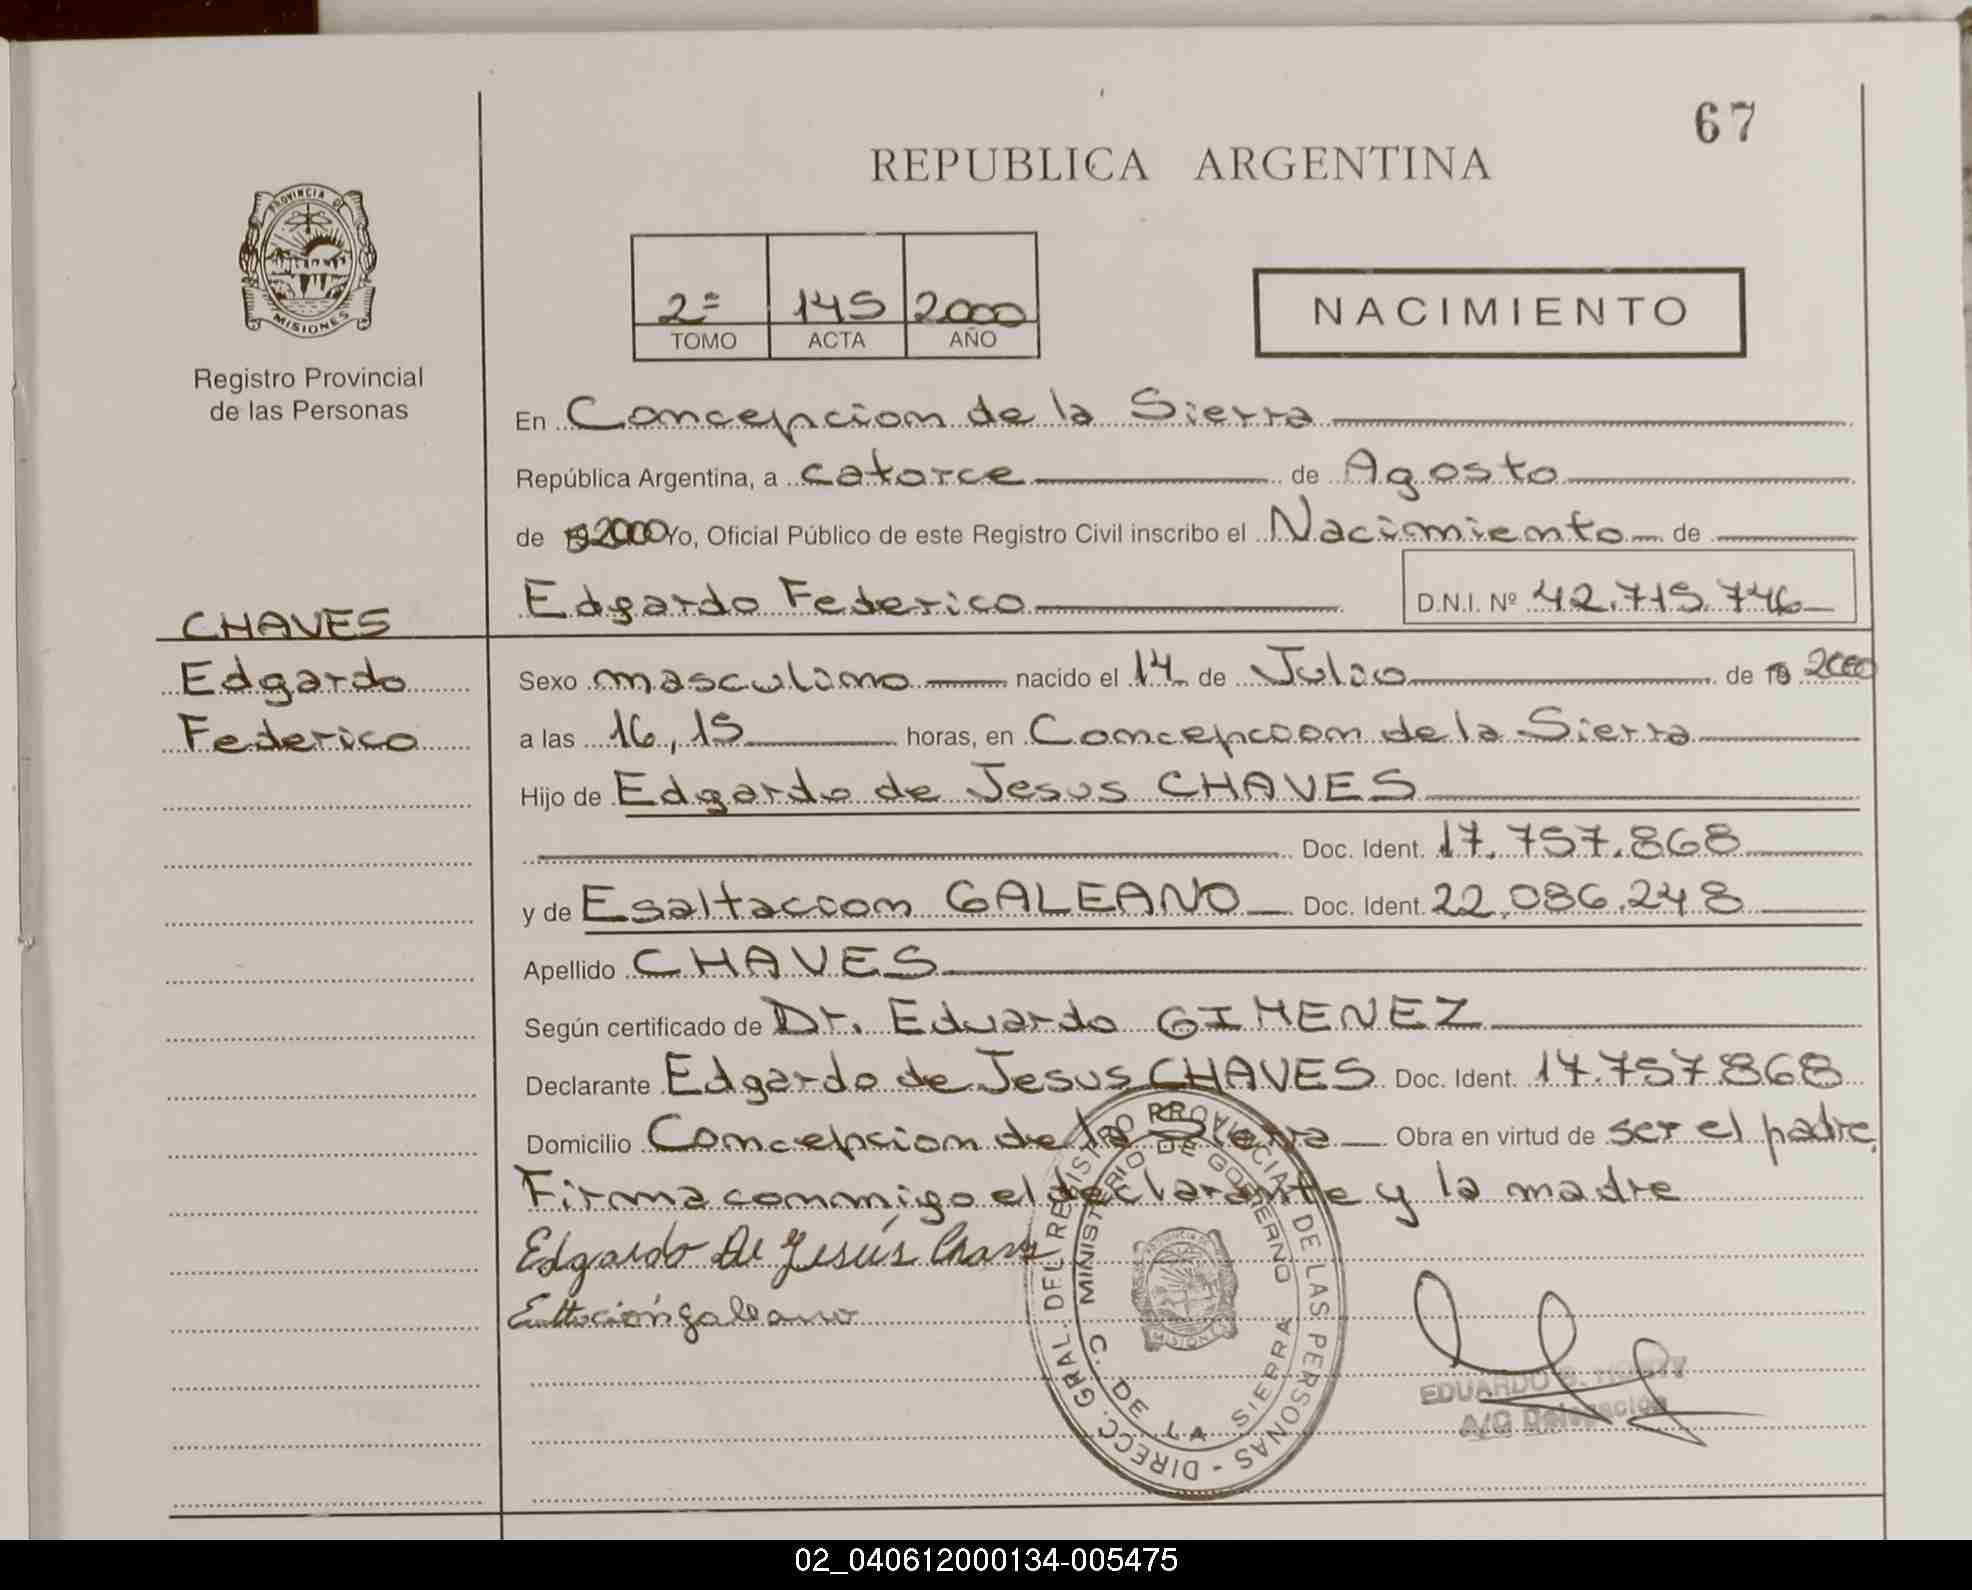 67
REPUBLICA ARGENTINA
PROVINCIA DE
MISIONES
Registro Provincial
de las Personas
2º 145 2000
TOMO ACTA AÑO
NACIMIENTO
En Concepcion de la Sierra
República Argentina, a catorce de Agosto
de 192000 Yo, Oficial Público de este Registro Civil inscribo el Nacimiento de
Edgardo Federico D.N.I. Nº 42.715.746
CHAVES
Edgardo
Federico
Sexo masculino nacido el 14 de Julio de 19 2000
a las 16,15 horas, en Concepcion de la Sierra
Hijo de Edgardo de Jesus CHAVES
Doc. Ident. 17.757.868
y de Esaltacion GALEANO Doc. Ident. 22.086.248
Apellido CHAVES
Según certificado de Dr. Eduardo GIMENEZ
Declarante Edgardo de Jesus CHAVES Doc. Ident. 17.757.868
Domicilio Concepcion de la Sierra Obra en virtud de ser el padre.
Firma conmigo el declarante y la madre
Edgardo De Jesús Chaves
galeano
DIRECC. GRAL. DEL REGISTRO PROVINCIAL DE LAS PERSONAS -
MINISTERIO DE GOBIERNO
C. DE LA SIERRA
PROVINCIA DE
MISIONES
EDUARDO
A/C Delegación
02_040612000134-005475